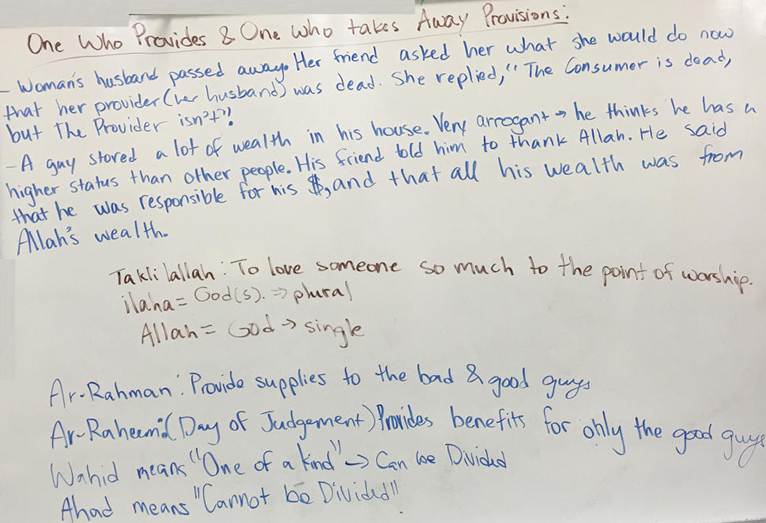 One Who Provides & One who takes Away Provisions:
- Woman's husband passed away. Her friend asked her what she would do now
that her provider (her husband) was dead. She replied, "The Consumer is dead,
but The Provider isn't"!
- A guy stored a lot of wealth in his house. Very arrogant → he thinks he has a
higher status than other people. His friend told him to thank Allah. He said
that he was responsible for his $, and that all his wealth was from
Allah's wealth.
Takli lallah: To love someone so much to the point of worship.
ilaha = God(s). ⇒ plural
Allah = God → single
Ar-Rahman: Provide supplies to the bad & good guys
Ar-Raheem: (Day of Judgement) Provides benefits for only the good guys
Wahid means "One of a kind" → Can be Divided
Ahad means "Cannot be Divided"